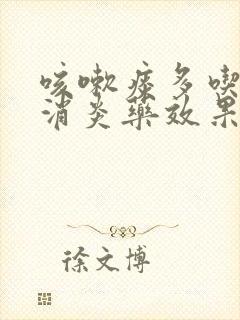 咳嗽痰多喫
消炎藥效果
徐文博